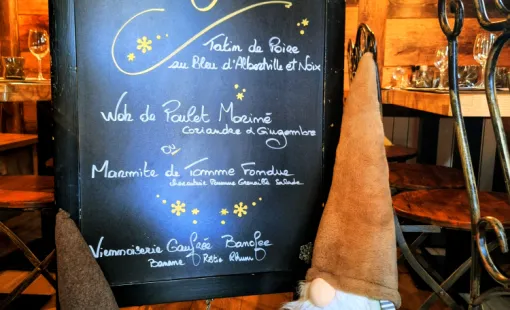 Tatin de Poire
au Bleu d'Albertville et Noix
Wok de Poulet Mariné
Coriandre et Gingembre
ou
Marmite de Tomme Fondue
Pomme Grenaille Salade
Viennoiserie Gaufrée Banofee
Banane Rôtie Rhum